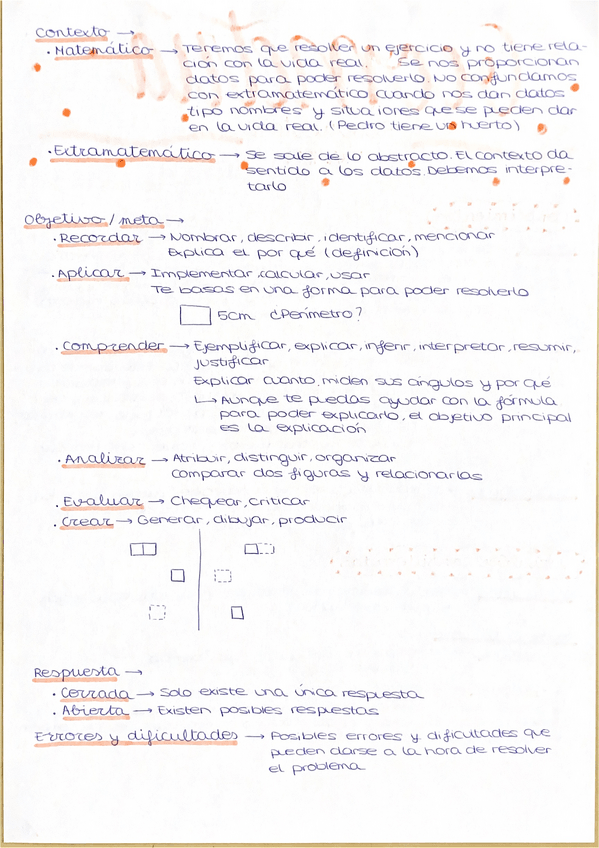 Contexto →
· Matemático → Tenemos que resolver un ejercicio y no tiene rela-
ción con la vida real. Se nos proporcionan
datos para poder resolverlo. No confundamos
con extramatemático cuando nos dan datos
tipo nombres y situaciones que se pueden dar
en la vida real. (Pedro tiene un huerto)
· Extramatemático → Se sale de lo abstracto. El contexto da
sentido a los datos. Debemos interpre-
tarlo
Objetivo / meta →
· Recordar → Nombrar, describir, identificar, mencionar
Explica el por qué (definición)
· Aplicar → Implementar, calcular, usar
Te basas en una forma para poder resolverlo
5cm ¿Perímetro?
· Comprender → Ejemplificar, explicar, inferir, interpretar, resumir,
justificar
Explicar cuanto miden sus ángulos y por qué
↳ Aunque te puedas ayudar con la fórmula
para poder explicarlo, el objetivo principal
es la explicación
· Analizar → Atribuir, distinguir, organizar
comparar dos figuras y relacionarlas
· Evaluar → Chequear, criticar
· Crear → Generar, dibujar, producir
Respuesta →
· Cerrada → Solo existe una única respuesta
· Abierta → Existen posibles respuestas
Errores y dificultades → Posibles errores y dificultades que
pueden darse a la hora de resolver
el problema